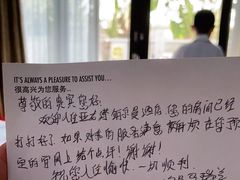 IT'S ALWAYS A PLEASURE TO ASSIST YOU...
很高兴为您服务...
尊敬的贵宾您好:
欢迎入住 酒店 您的房间已经
打扫好了 如果对我的服务满意 麻烦在
的官网上给个点评! 谢谢!
祝您入住愉快、一切顺利